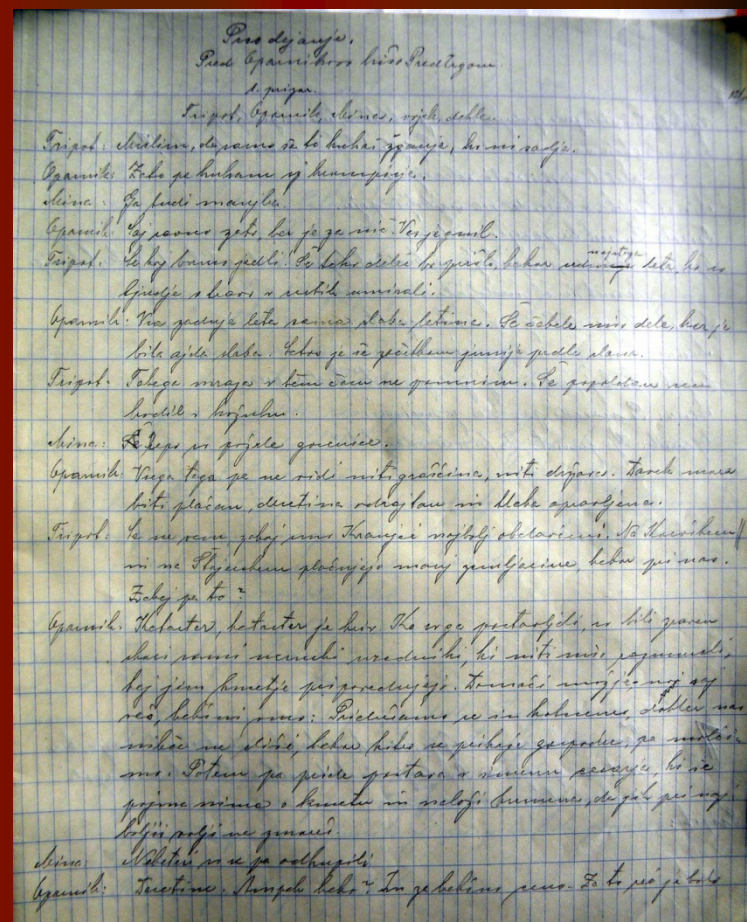 Prvo dejanje.
Pred Oparnikovo hišo Pred trgom.
1. prizor.
Tripot, Oparnik, Mina,
Tripot: Mislim, da samo še ti kuhaš žganje, ko ni sadja.
Oparnik: Zato pa kuham iz krompirja.
Mina: Pa tudi
Oparnik: Saj ravno zato, ker je za nič. Ves je gnil.
Tripot: Le kaj bomo jedli! Še tako daleč bo prišlo, kakor leta, ko so
ljudje v ustih umirali.
Oparnik: Vsa zadnja leta sama slaba letina. Še čebele niso dale, ker je
bila ajda slaba. Letos je še začetkom junija padla slana.
Tripot: Takega mraza v tem času ne pomnim. Še popoldan sem
hodil v kožuhu.
Mina: Repo so pojedle gosenice.
Oparnik: Vsega tega pa ne vidi niti graščina, niti država. Davek mora
biti plačan, desetina odrajtana in tlaka opravljena.
Tripot: Le ne vem zakaj smo Kranjci najbolj obdavčeni. Na Koroškem
in na Štajerskem plačujejo manj zemljarine, kakor pri nas.
Zakaj pa to?
Oparnik: Kataster, kataster je kriv. Ko so ga postavljali, so bili zraven
sami nemški uradniki, ki niti niso razumeli,
kaj jim kmetje pripovedujejo. Domači možje, naj
smo: Pridušamo se in kolnemo, dokler nas
nihče ne sliši, kakor hitro se prikaže gospoda, pa molči-
mo. Potem pa pride postava v imenu cesarja, ki še
pojma nima o kmetu in naloži bremena, da jih pri naj-
boljši volji ne zmoreš.
Mina: Nekateri so se pa odkupili
Oparnik: Desetine. Ampak kako? In za kakšno ceno. Za to